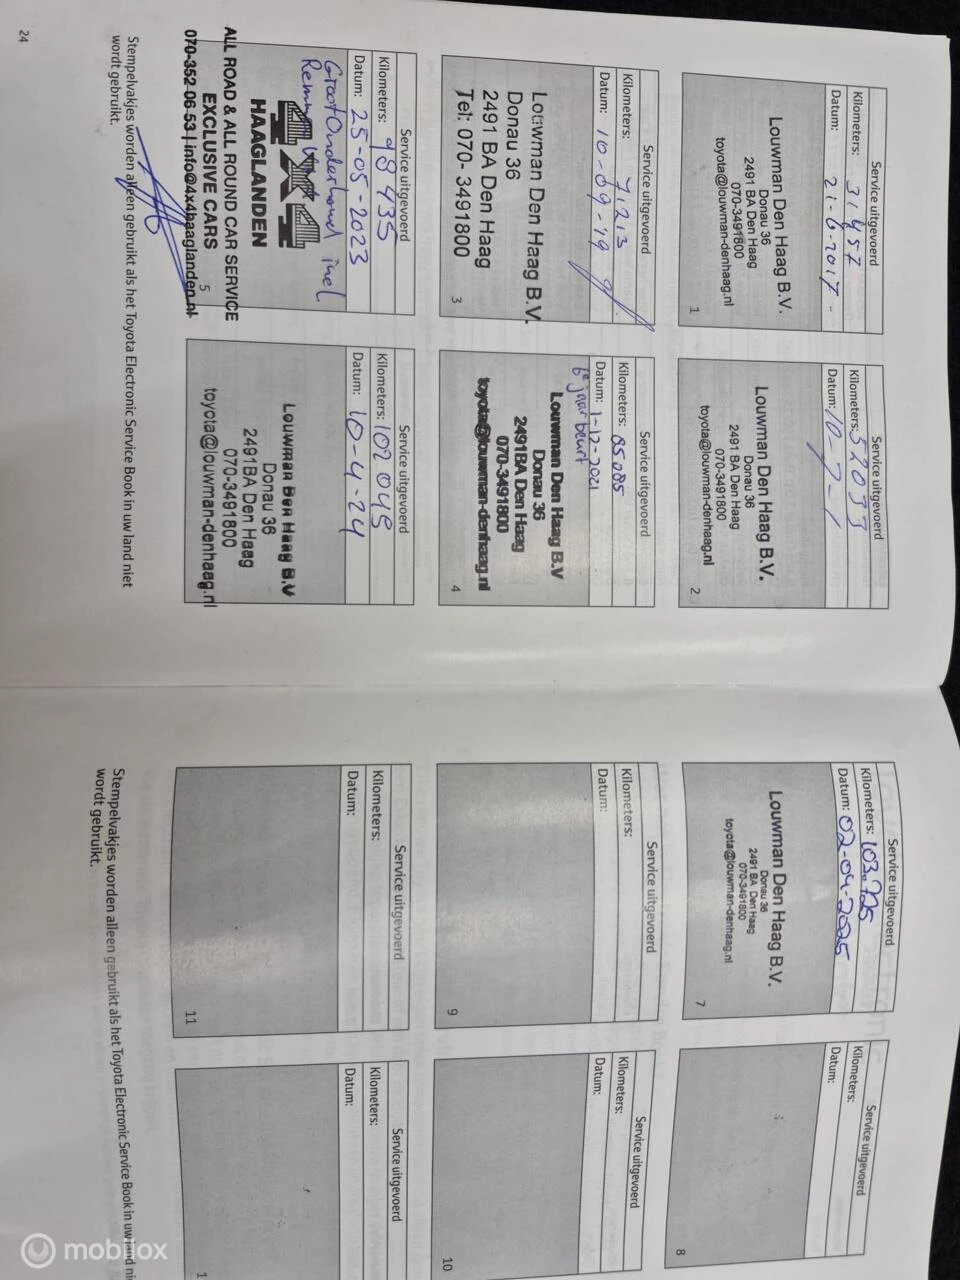 Service uitgevoerd
Kilometers: 31.457
Datum: 21-6-2017
Louwman Den Haag B.V.
Donau 36
2491 BA Den Haag
070-3491800
toyota@louwman-denhaag.nl
1
Service uitgevoerd
Kilometers: 52033
Datum: 10-7-1
Louwman Den Haag B.V.
Donau 36
2491 BA Den Haag
070-3491800
toyota@louwman-denhaag.nl
2
Service uitgevoerd
Kilometers: 71213
Datum: 10-09-19
Louwman Den Haag B.V.
Donau 36
2491 BA Den Haag
Tel: 070- 3491800
3
Service uitgevoerd
Kilometers: 85085
Datum: 1-12-2021
6e jaar beurt
Louwman Den Haag B.V
Donau 36
2491BA Den Haag
070-3491800
toyota@louwman-denhaag.nl
4
Service uitgevoerd
Kilometers: 98435
Datum: 25-05-2023
Groot Onderhoud incl
4X4
HAAGLANDEN
EXCLUSIVE CARS
5
ALL ROAD & ALL ROUND CAR SERVICE
070-352 06 53 | info@4x4haaglanden.nl
Service uitgevoerd
Kilometers: 102048
Datum: 10-4-24
Louwman Den Haag B.V
Donau 36
2491BA Den Haag
070-3491800
toyota@louwman-denhaag.nl
Stempelvakjes worden alleen gebruikt als het Toyota Electronic Service Book in uw land niet
wordt gebruikt.
24
Service uitgevoerd
Kilometers: 103.725
Datum: 02-04-2025
Louwman Den Haag B.V.
Donau 36
2491 BA Den Haag
070-3491800
toyota@louwman-denhaag.nl
7
Service uitgevoerd
Kilometers:
Datum:
8
Service uitgevoerd
Kilometers:
Datum:
9
Service uitgevoerd
Kilometers:
Datum:
10
Service uitgevoerd
Kilometers:
Datum:
11
Service uitgevoerd
Kilometers:
Datum:
1
Stempelvakjes worden alleen gebruikt als het Toyota Electronic Service Book in uw land ni
wordt gebruikt.
mobilox